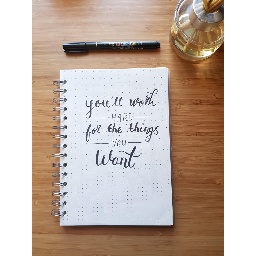 you'll work
HARD
for the things
YOU
Want